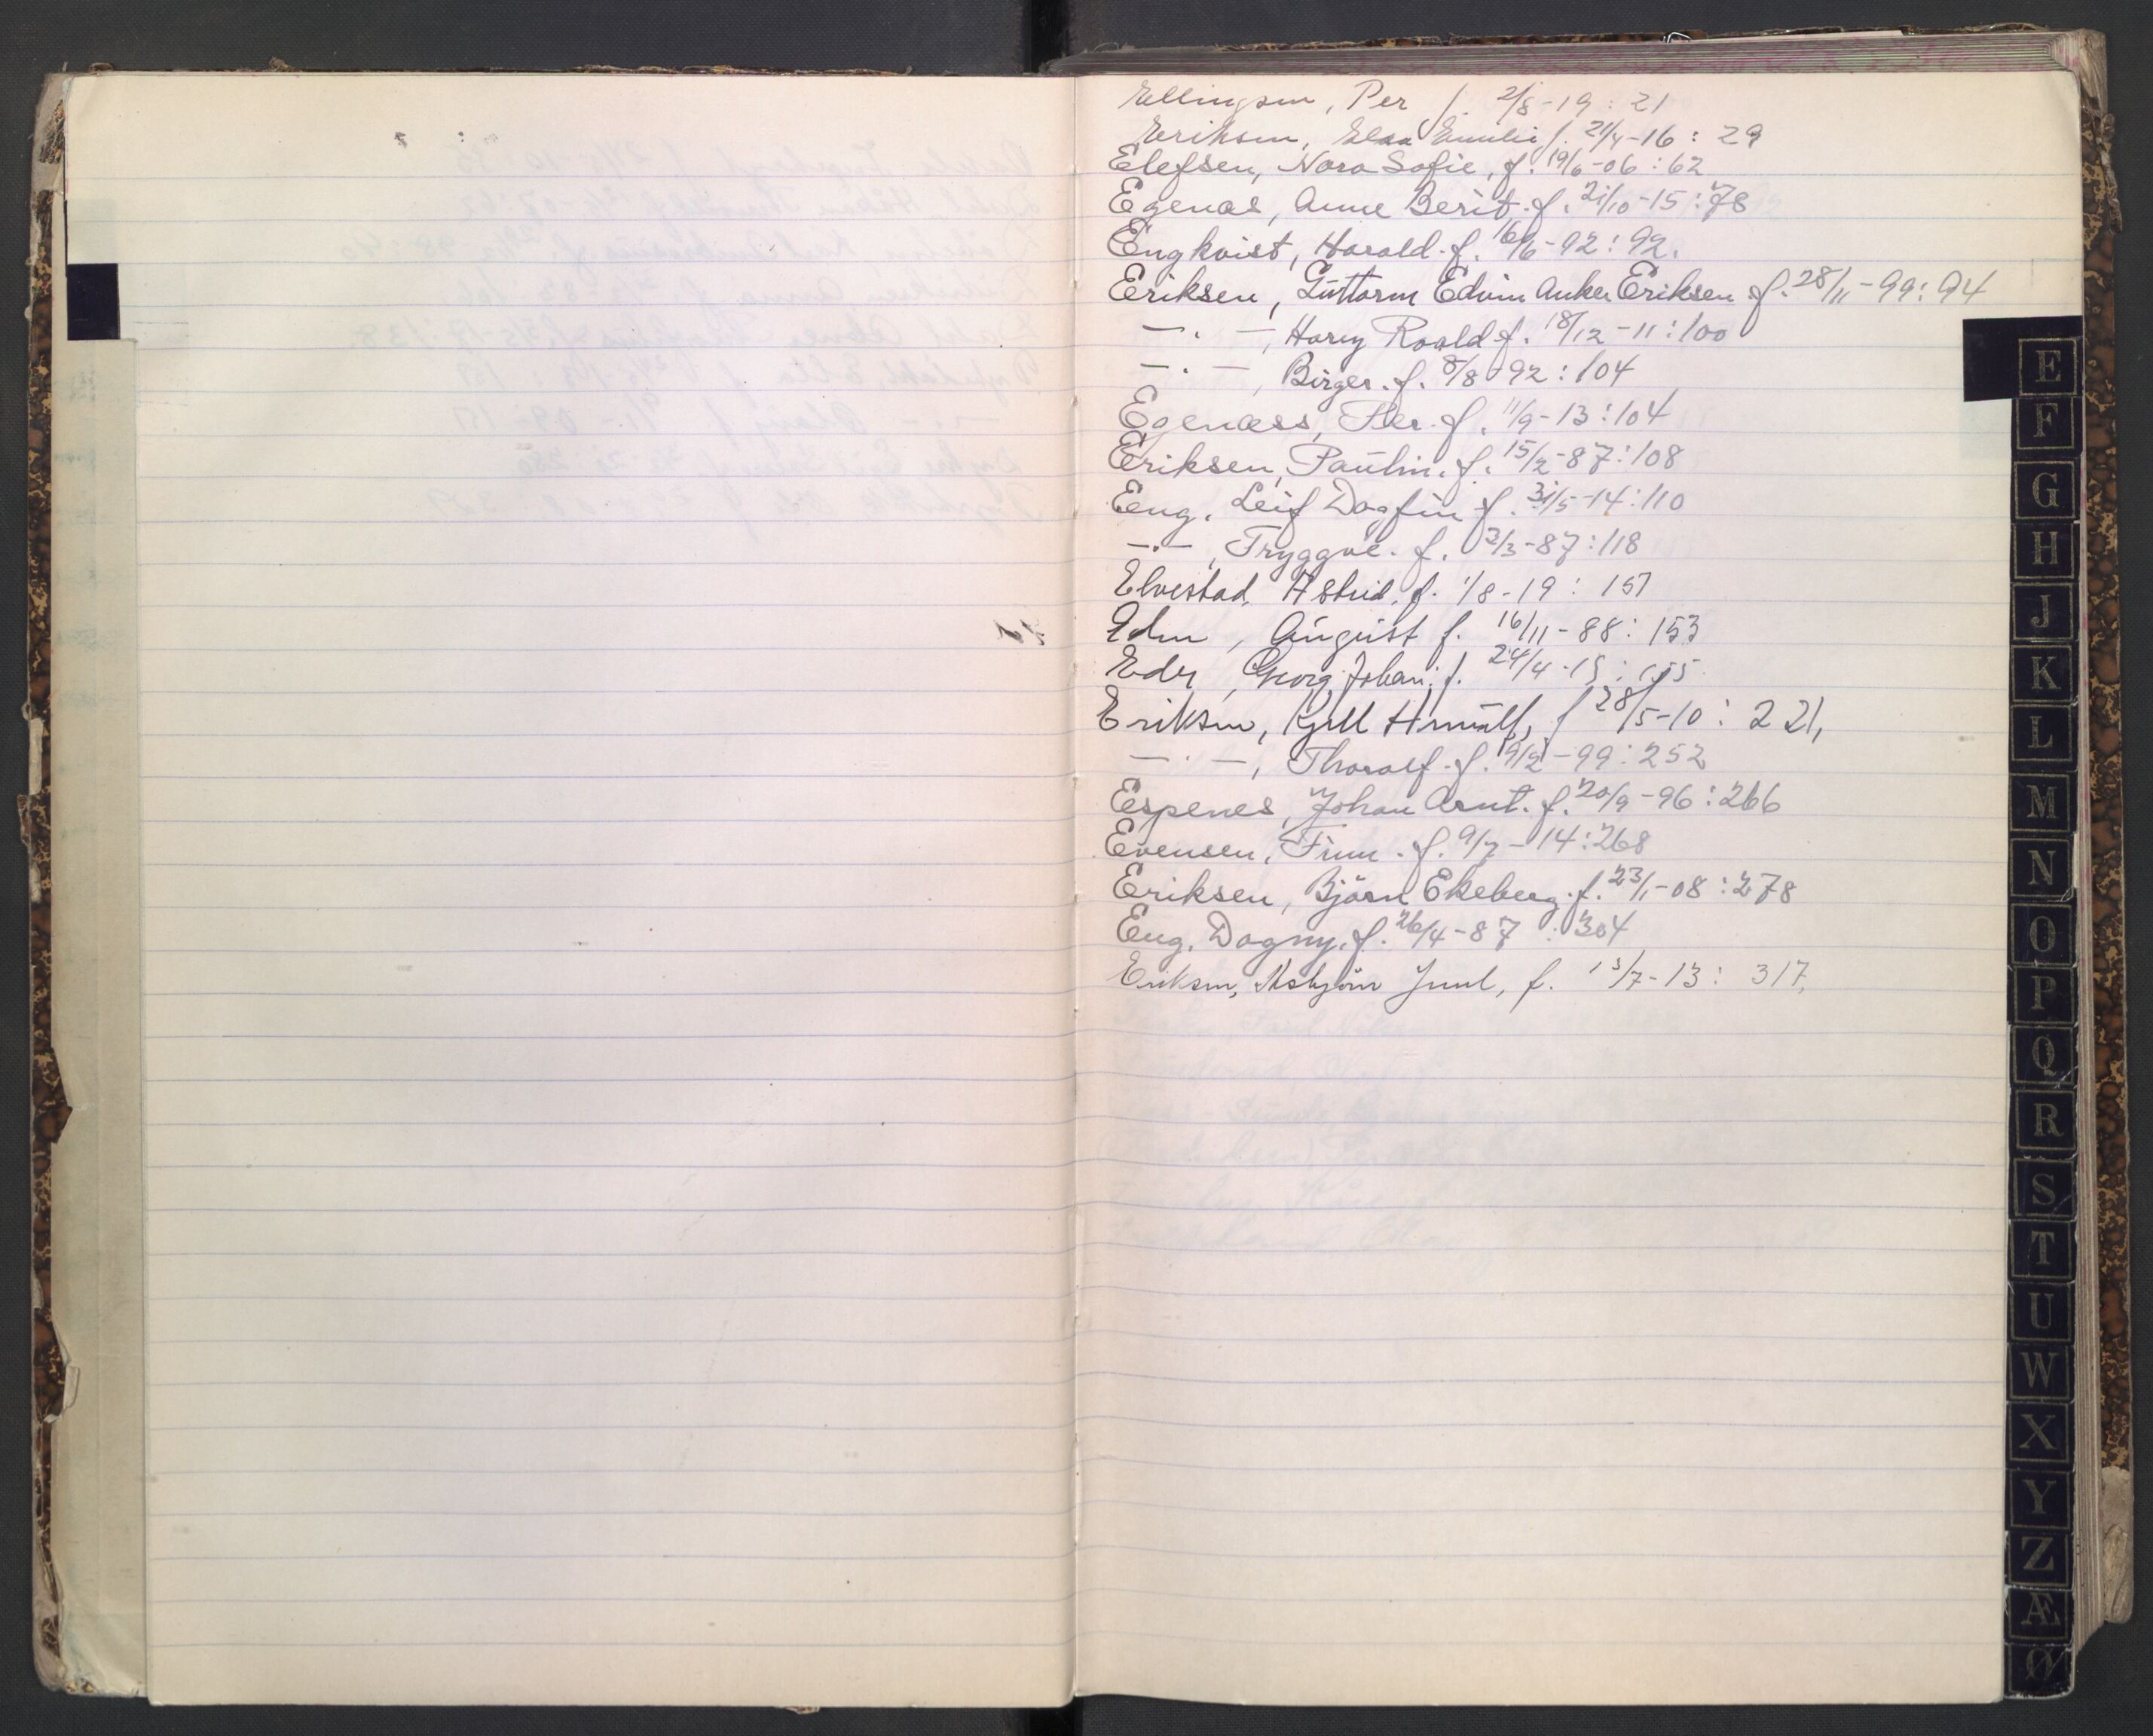 Ellingsen, Per f. 2/8-19 : 21
Eeriksen, Elsa Emilie f. 21/4-16 : 29
Elefsen, Nora Sofie, f. 19/6-06 : 62
Egenæs, Anne Berit. f. 21/10-15 : 78
Engkvist, Harald. f. 16/6-92 : 92.
Eriksen, Guttorm Edvin Anker Eriksen f. 28/11-99 : 94
— . —, Harry Roald f. 18/12-11 : 100
— . —, Birger. f. 8/8-92 : 104
Egenæss, Per. f. 11/9-13 : 104
Eriksen, Paulin. f. 15/2-87 : 108
Eng. Leif Dagfin f. 31/5-14 : 110
— . —, Tryggve. f. 2/3-87 : 118
Elvestad, Astrid, f. 1/8-19 : 151
August f. 16/11-88 : 153
Georg Johan. f. 24/4-15 : 155
Eriksen, Kjell f 28/5-10 : 221,
— . —, Thoralf. f. 19/2-99 : 252
Espenes, Johan Arnt. f. 20/9-96 : 266
Evensen, Finn. f. 9/7-14 : 268
Eriksen, Björn Ekeberg. f. 23/1-08 : 278
Eng, Dagny, f. 26/4-87 : 304
Eriksen, Asbjörn Juul, f. 13/7-13 : 317,
E
F
G
H
J
K
L
M
N
O
P
Q
R
S
T
U
W
X
Y
Z
Æ
Ø